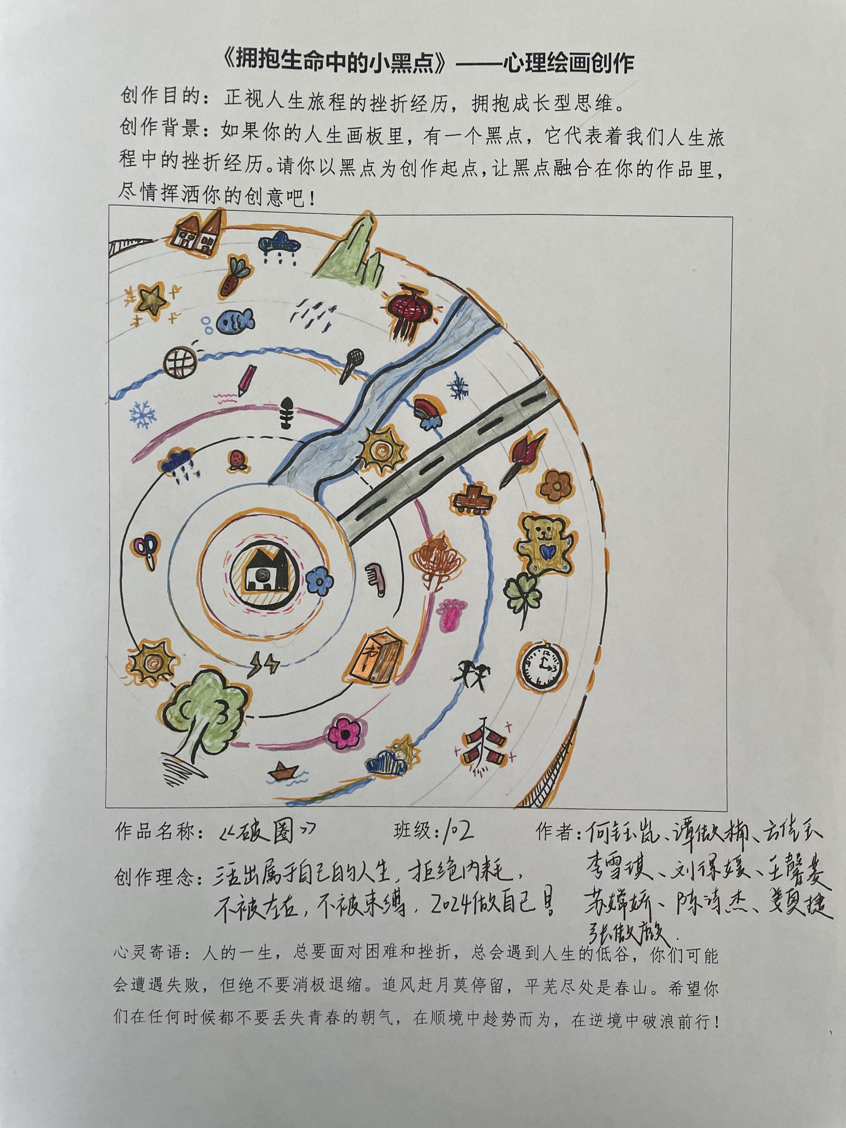 《拥抱生命中的小黑点》——心理绘画创作
创作目的：正视人生旅程的挫折经历，拥抱成长型思维。
创作背景：如果你的人生画板里，有一个黑点，它代表着我们人生旅
程中的挫折经历。请你以黑点为创作起点，让黑点融合在你的作品里，
尽情挥洒你的创意吧！
书
作品名称：《破圈》
班级：102
作者：何钰岚、谭
创作理念：活出属于自己的人生，拒绝内耗，
李雪琪、刘
不被左右，不被束缚，2024做自己
苏婷娇、陈诗杰、
张
心灵寄语：人的一生，总要面对困难和挫折，总会遇到人生的低谷，你们可能
会遭遇失败，但绝不要消极退缩。追风赶月莫停留，平芜尽处是春山。希望你
们在任何时候都不要丢失青春的朝气，在顺境中趁势而为，在逆境中破浪前行！